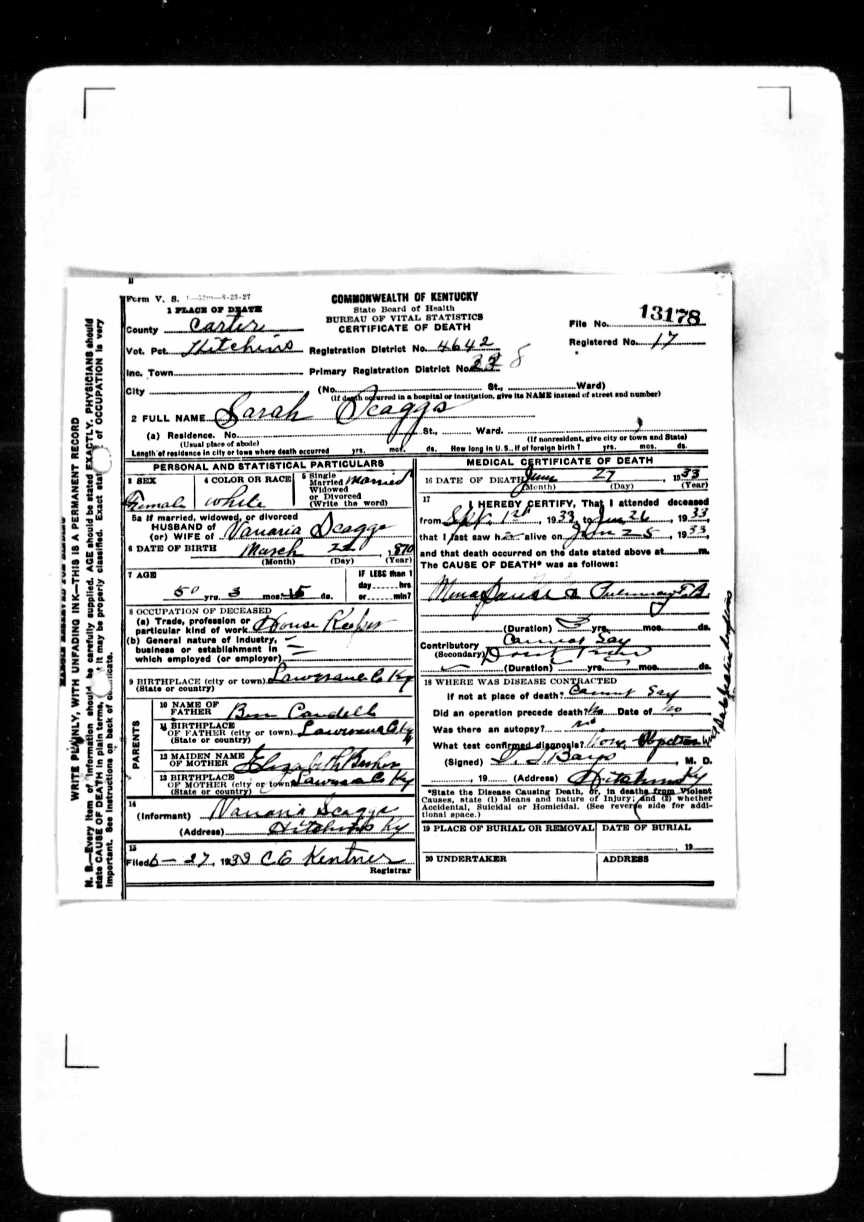 Form V. S. 1—50m—8-23-27
COMMONWEALTH OF KENTUCKY
State Board of Health
BUREAU OF VITAL STATISTICS
CERTIFICATE OF DEATH
File No. 13178
Registered No. 17
1 PLACE OF DEATH
County Carter
Vot. Pct. Hitchins
Registration District No. 4642
Inc. Town
Primary Registration District No. 8
City (No. St., Ward)
(If death occurred in a hospital or institution, give its NAME instead of street and number)
2 FULL NAME Sarah Scaggs
(a) Residence. No. St., Ward.
(Usual place of abode) (If nonresident, give city or town and State)
Length of residence in city or town where death occurred yrs. mos. ds. How long in U. S., if of foreign birth? yrs. mos. ds.
PERSONAL AND STATISTICAL PARTICULARS
3 SEX Female
4 COLOR OR RACE white
5 Single Married Widowed or Divorced (Write the word) Married
5a If married, widowed, or divorced
HUSBAND of
(or) WIFE of Vanaria Scaggs
6 DATE OF BIRTH March 22, 1870
(Month) (Day) (Year)
7 AGE
50 yrs. 3 mos. 15 ds.
IF LESS than 1 day hrs or min?
8 OCCUPATION OF DECEASED
(a) Trade, profession or particular kind of work House Keeper
(b) General nature of industry, business or establishment in which employed (or employer)
9 BIRTHPLACE (city or town) Lawrence Co Ky
(State or country)
PARENTS
10 NAME OF FATHER Ben Caudill
11 BIRTHPLACE OF FATHER (city or town) Lawrence Co Ky
(State or country)
12 MAIDEN NAME OF MOTHER Elizabeth
13 BIRTHPLACE OF MOTHER (city or town) Lawrence Co Ky
(State or country)
14
(Informant) Vanaria Scaggs
(Address) Hitchins Ky
15
Filed 6-27, 1933 C E Kentner
Registrar
MEDICAL CERTIFICATE OF DEATH
16 DATE OF DEATH June 27, 1933
(Month) (Day) (Year)
17
I HEREBY CERTIFY, That I attended deceased
from Sept. 1st, 1933 to Jun 26, 1933,
that I last saw h alive on Jun 25, 1933,
and that death occurred on the date stated above at m.
The CAUSE OF DEATH* was as follows:
Pulmonary T.B.
(Duration) 3 yrs. mos. ds.
Contributory Cannot Say
(Secondary) Dont
(Duration) yrs. mos. ds.
18 WHERE WAS DISEASE CONTRACTED
If not at place of death? Cannot Say
Did an operation precede death? No Date of No
Was there an autopsy? No
What test confirmed diagnosis?
(Signed) Bays, M. D.
, 19 (Address) Hitchins Ky
*State the Disease Causing Death, or, in deaths from Violent
Causes, state (1) Means and nature of Injury; and (2) whether
Accidental, Suicidal or Homicidal. (See reverse side for addi-
tional space.)
19 PLACE OF BURIAL OR REMOVAL
DATE OF BURIAL
, 19
20 UNDERTAKER
ADDRESS
WRITE PLAINLY, WITH UNFADING INK—THIS IS A PERMANENT RECORD
N. B.—Every item of information should be carefully supplied. AGE should be stated EXACTLY. PHYSICIANS should
state CAUSE OF DEATH in plain terms, it may be properly classified. Exact of OCCUPATION is very
important. See instructions on back of certificate.